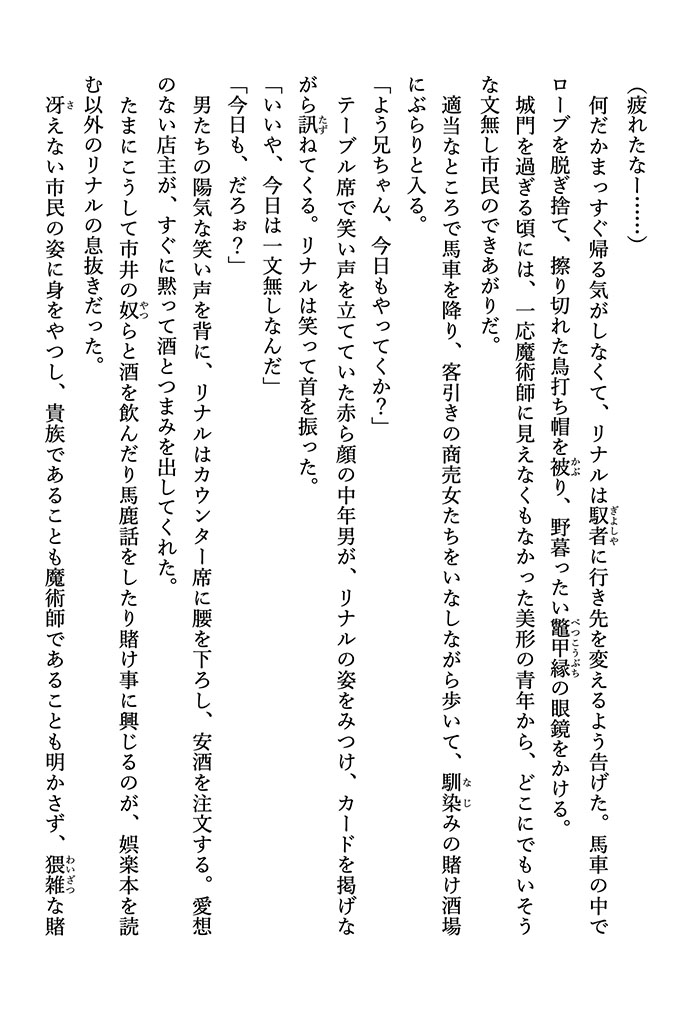 （疲れたなー……）
　何だかまっすぐ帰る気がしなくて、リナルは馭者に行き先を変えるよう告げた。馬車の中で
ローブを脱ぎ捨て、擦り切れた鳥打ち帽を被り、野暮ったい鼈甲縁の眼鏡をかける。
　城門を過ぎる頃には、一応魔術師に見えなくもなかった美形の青年から、どこにでもいそう
な文無し市民のできあがりだ。
　適当なところで馬車を降り、客引きの商売女たちをいなしながら歩いて、馴染みの賭け酒場
にぶらりと入る。
「よう兄ちゃん、今日もやってくか？」
　テーブル席で笑い声を立てていた赤ら顔の中年男が、リナルの姿をみつけ、カードを掲げな
がら訊ねてくる。リナルは笑って首を振った。
「いいや、今日は一文無しなんだ」
「今日も、だろぉ？」
　男たちの陽気な笑い声を背に、リナルはカウンター席に腰を下ろし、安酒を注文する。愛想
のない店主が、すぐに黙って酒とつまみを出してくれた。
　たまにこうして市井の奴らと酒を飲んだり馬鹿話をしたり賭け事に興じるのが、娯楽本を読
む以外のリナルの息抜きだった。
　冴えない市民の姿に身をやつし、貴族であることも魔術師であることも明かさず、猥雑な賭